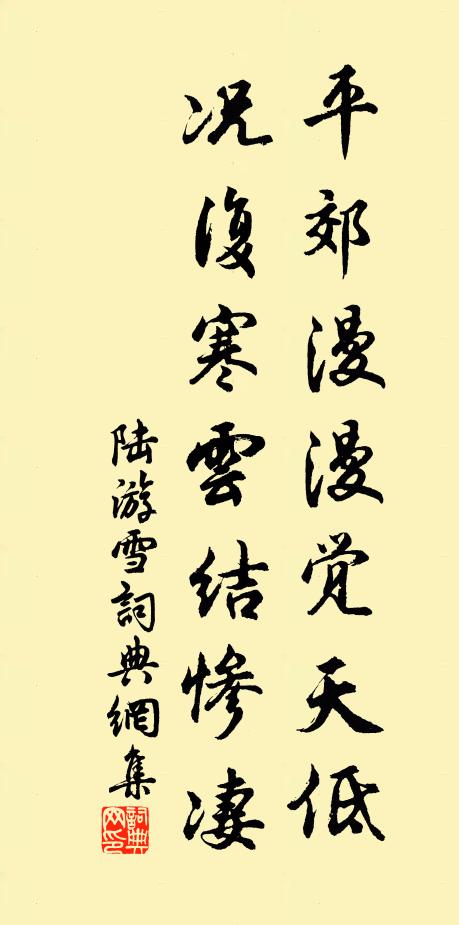 平郊漫漫覚天低
况復寒雲结惨凄
陆游雪詞典網集
詞典网印